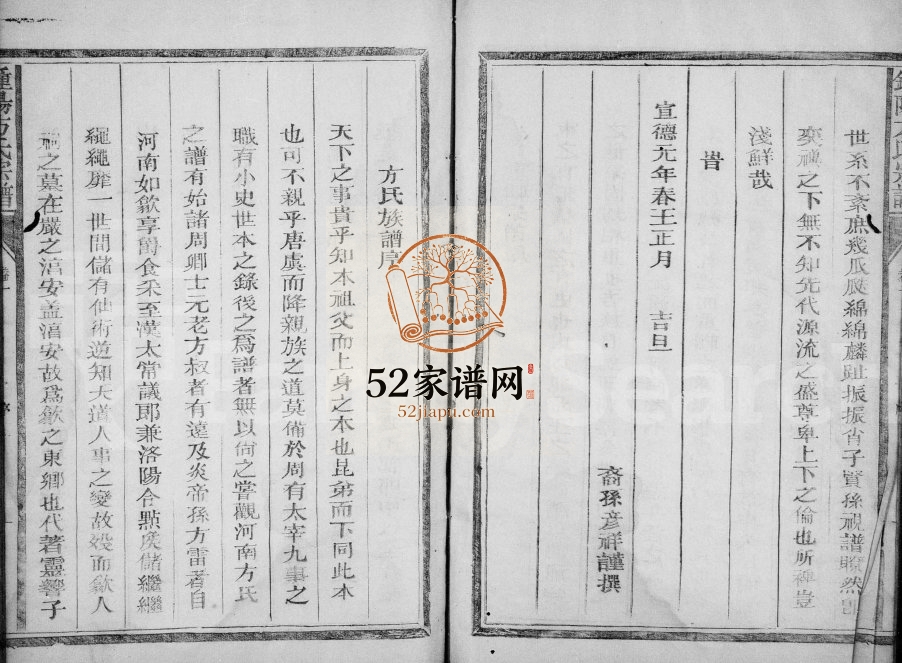 世系不紊庶幾瓜瓞綿綿麟趾振振肖子賢孫視譜瞭然
奕禩之下無不知先代源流之盛尊卑上下之倫也所裨豈
淺鮮哉
旹
宣德元年春王正月 吉日
裔孫彥祥謹撰
方氏族譜序
天下之事貴乎知本祖父而上身之本也昆弟而下同此本
也可不親乎唐虞而降親族之道莫備於周有太宰九事之
職有小史世本之錄後之為譜者無以尚之嘗觀河南方氏
之譜有始諸周卿士元老方叔者有遠及炎帝孫方雷者自
河南如歙享爵食采至漢太常議郎兼洛陽令點侯儲繼繼
繩繩靡一世間儲有仙術道知天道人事之變故歿而歙人
祠之墓在嚴之湻安盖湻安故為歙之東鄉也代著靈響子
52家谱网
52jiapu.com